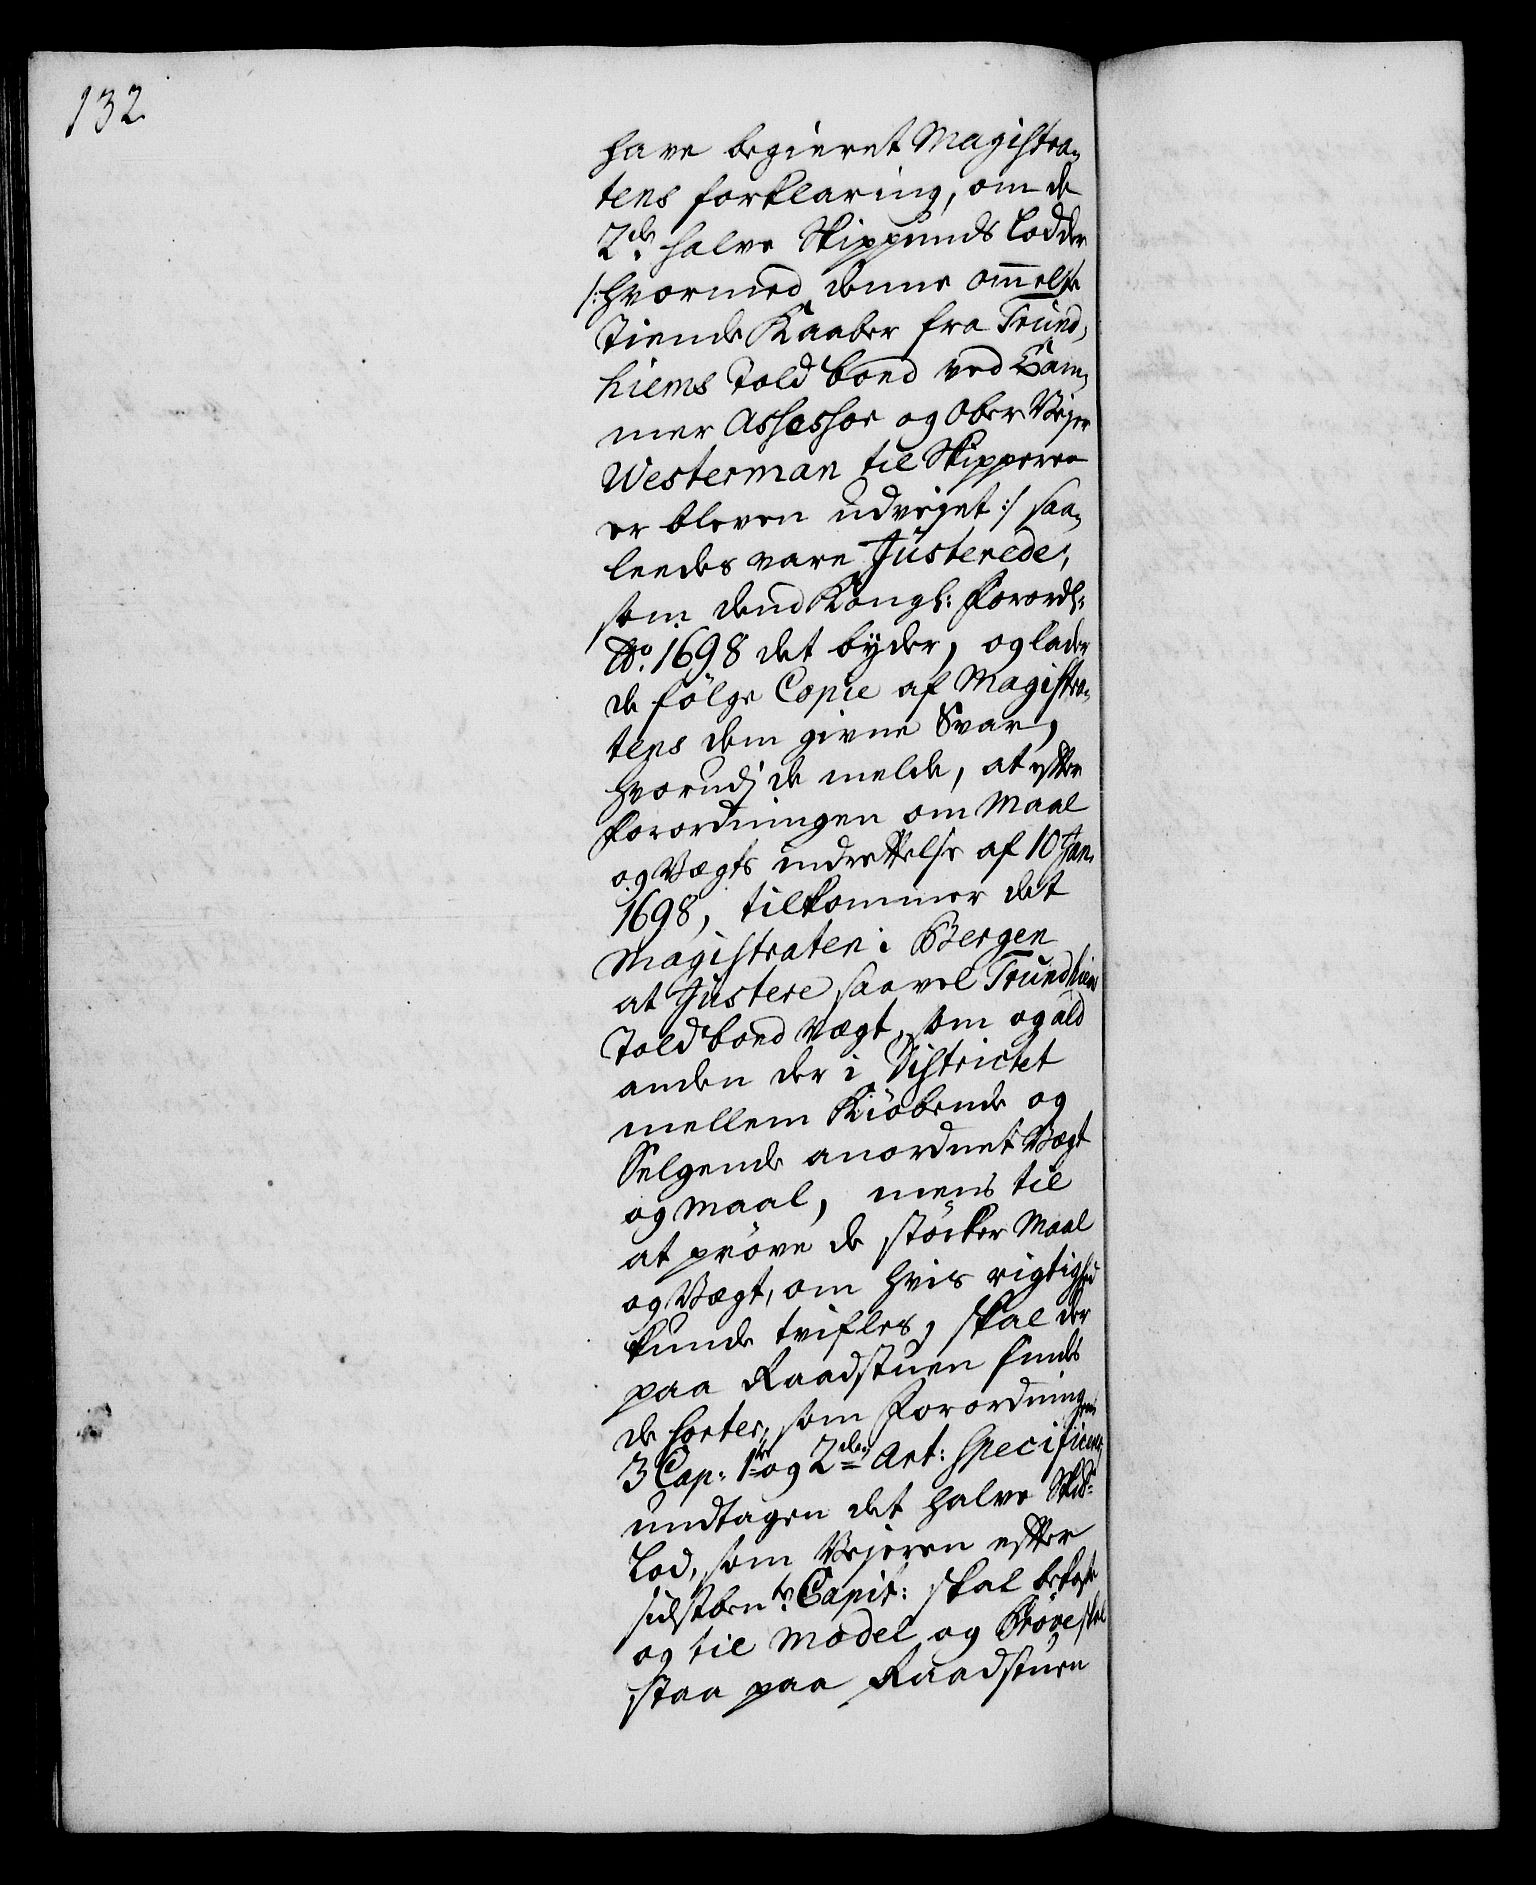 132
have begieret Magistra„
tens forklaring, om de
2de halve Skippunds Lodder
/: hvormed denne ommelte
Tiende Kaaber fra Trund„
hiems Told bond ved Cam„
mer Assessor og Ober Vejer
Westerman til Skipperen
er bleven udvejet :/ saa„
leedes vare Justerede,
som dend Kongl: Forordl:
Ao. 1698 det byder, og lader
de følge Copie af Magistra„
tens dem givne Svar,
hvorudj de melde, at efter
forordningen om Maal
og Vægts indrettelse af 10 Jan.
1698, tilkommer det
Magistraten i Bergen
at Justere saa vel Trundhiems
Told bond Vægt, som og ald
anden der i Districtet
mellem Kiøbende og
Selgende anordnet Vægt
og Maal, mens til
at prøve de støcker Maal
og Vægt, om hvis rigtighed
kunde tvifles, skal der
paa Raadstuen findes
de sorter, som Forordningens
3 Cap: 1te og 2den Art: Specificerer,
undtagen det halve Skd:
Lod, som Vejeren efter
sidstben.te Capit: skal bekoste
og til Model og Prøve skal
staa paa Raadstuen